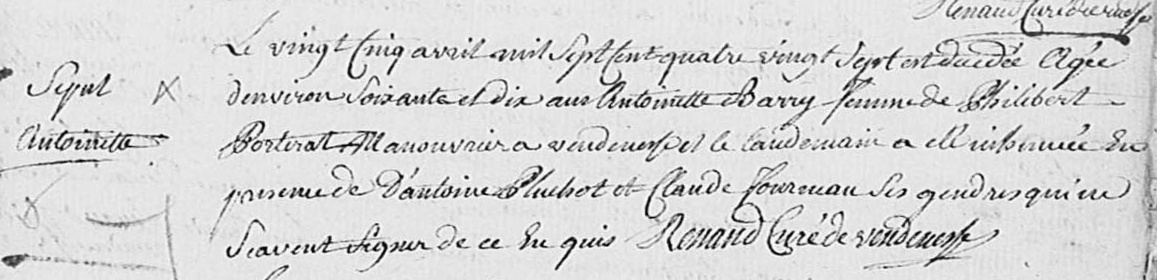 Renaud Curé de vendenesse
Le vingt Cinq avril mil Sept Cent quatre vingt Sept est decedée Agée
Sepul
denviron Soixante et dix ans Antoinette Barry femme de Philibert
Antoinette
Porterat Manouvrier a vendenesse et le Landemain a été inhumée En
presence de D'antoine Pluchot et Claude fourneau Ses gendres qui ne
Scavent Signer de ce En quis Renaud Curé de vendenesse